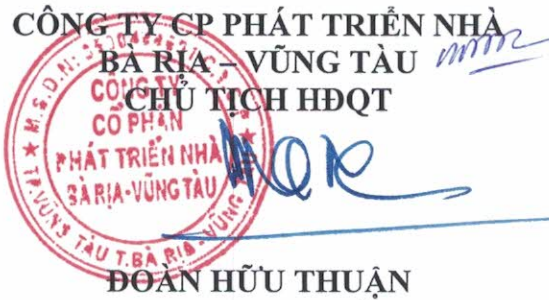 CÔNG TY CP PHÁT TRIỂN NHÀ
BÀ RỊA – VŨNG TÀU
CHỦ TỊCH HĐQT
CÔNG TY
CỔ PHẦN
PHÁT TRIỂN NHÀ
BÀ RỊA-VŨNG TÀU
M.S.D.N:
TP.VŨNG TÀU T.BÀ RỊA - VŨNG
ĐOÀN HỮU THUẬN